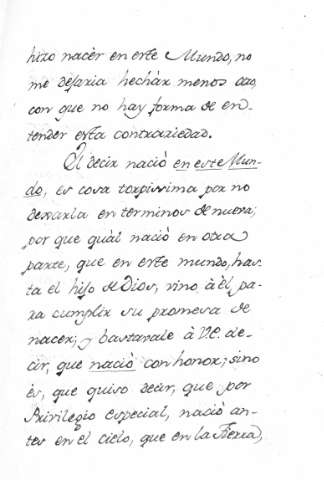 hizo nacèr en este Mundo, no
me dejaria hechàr menos
con que no hay forma de en-
tender esta contrariedad.
El decir nació en este Mun-
do, es cosa torpissima por no
dexarla en terminos de nueva;
por que quàl nació en otra
parte, que en este mundo, has-
ta el hijo de Dios, vino à èl pa-
ra cumplir su promesa de
nacer; y bastanale à V.E. de-
cir, que nació con honor; sino
és, que quiso decir, que por
Privilegio especial, nació an-
tes en el cielo, que en la Tierra,